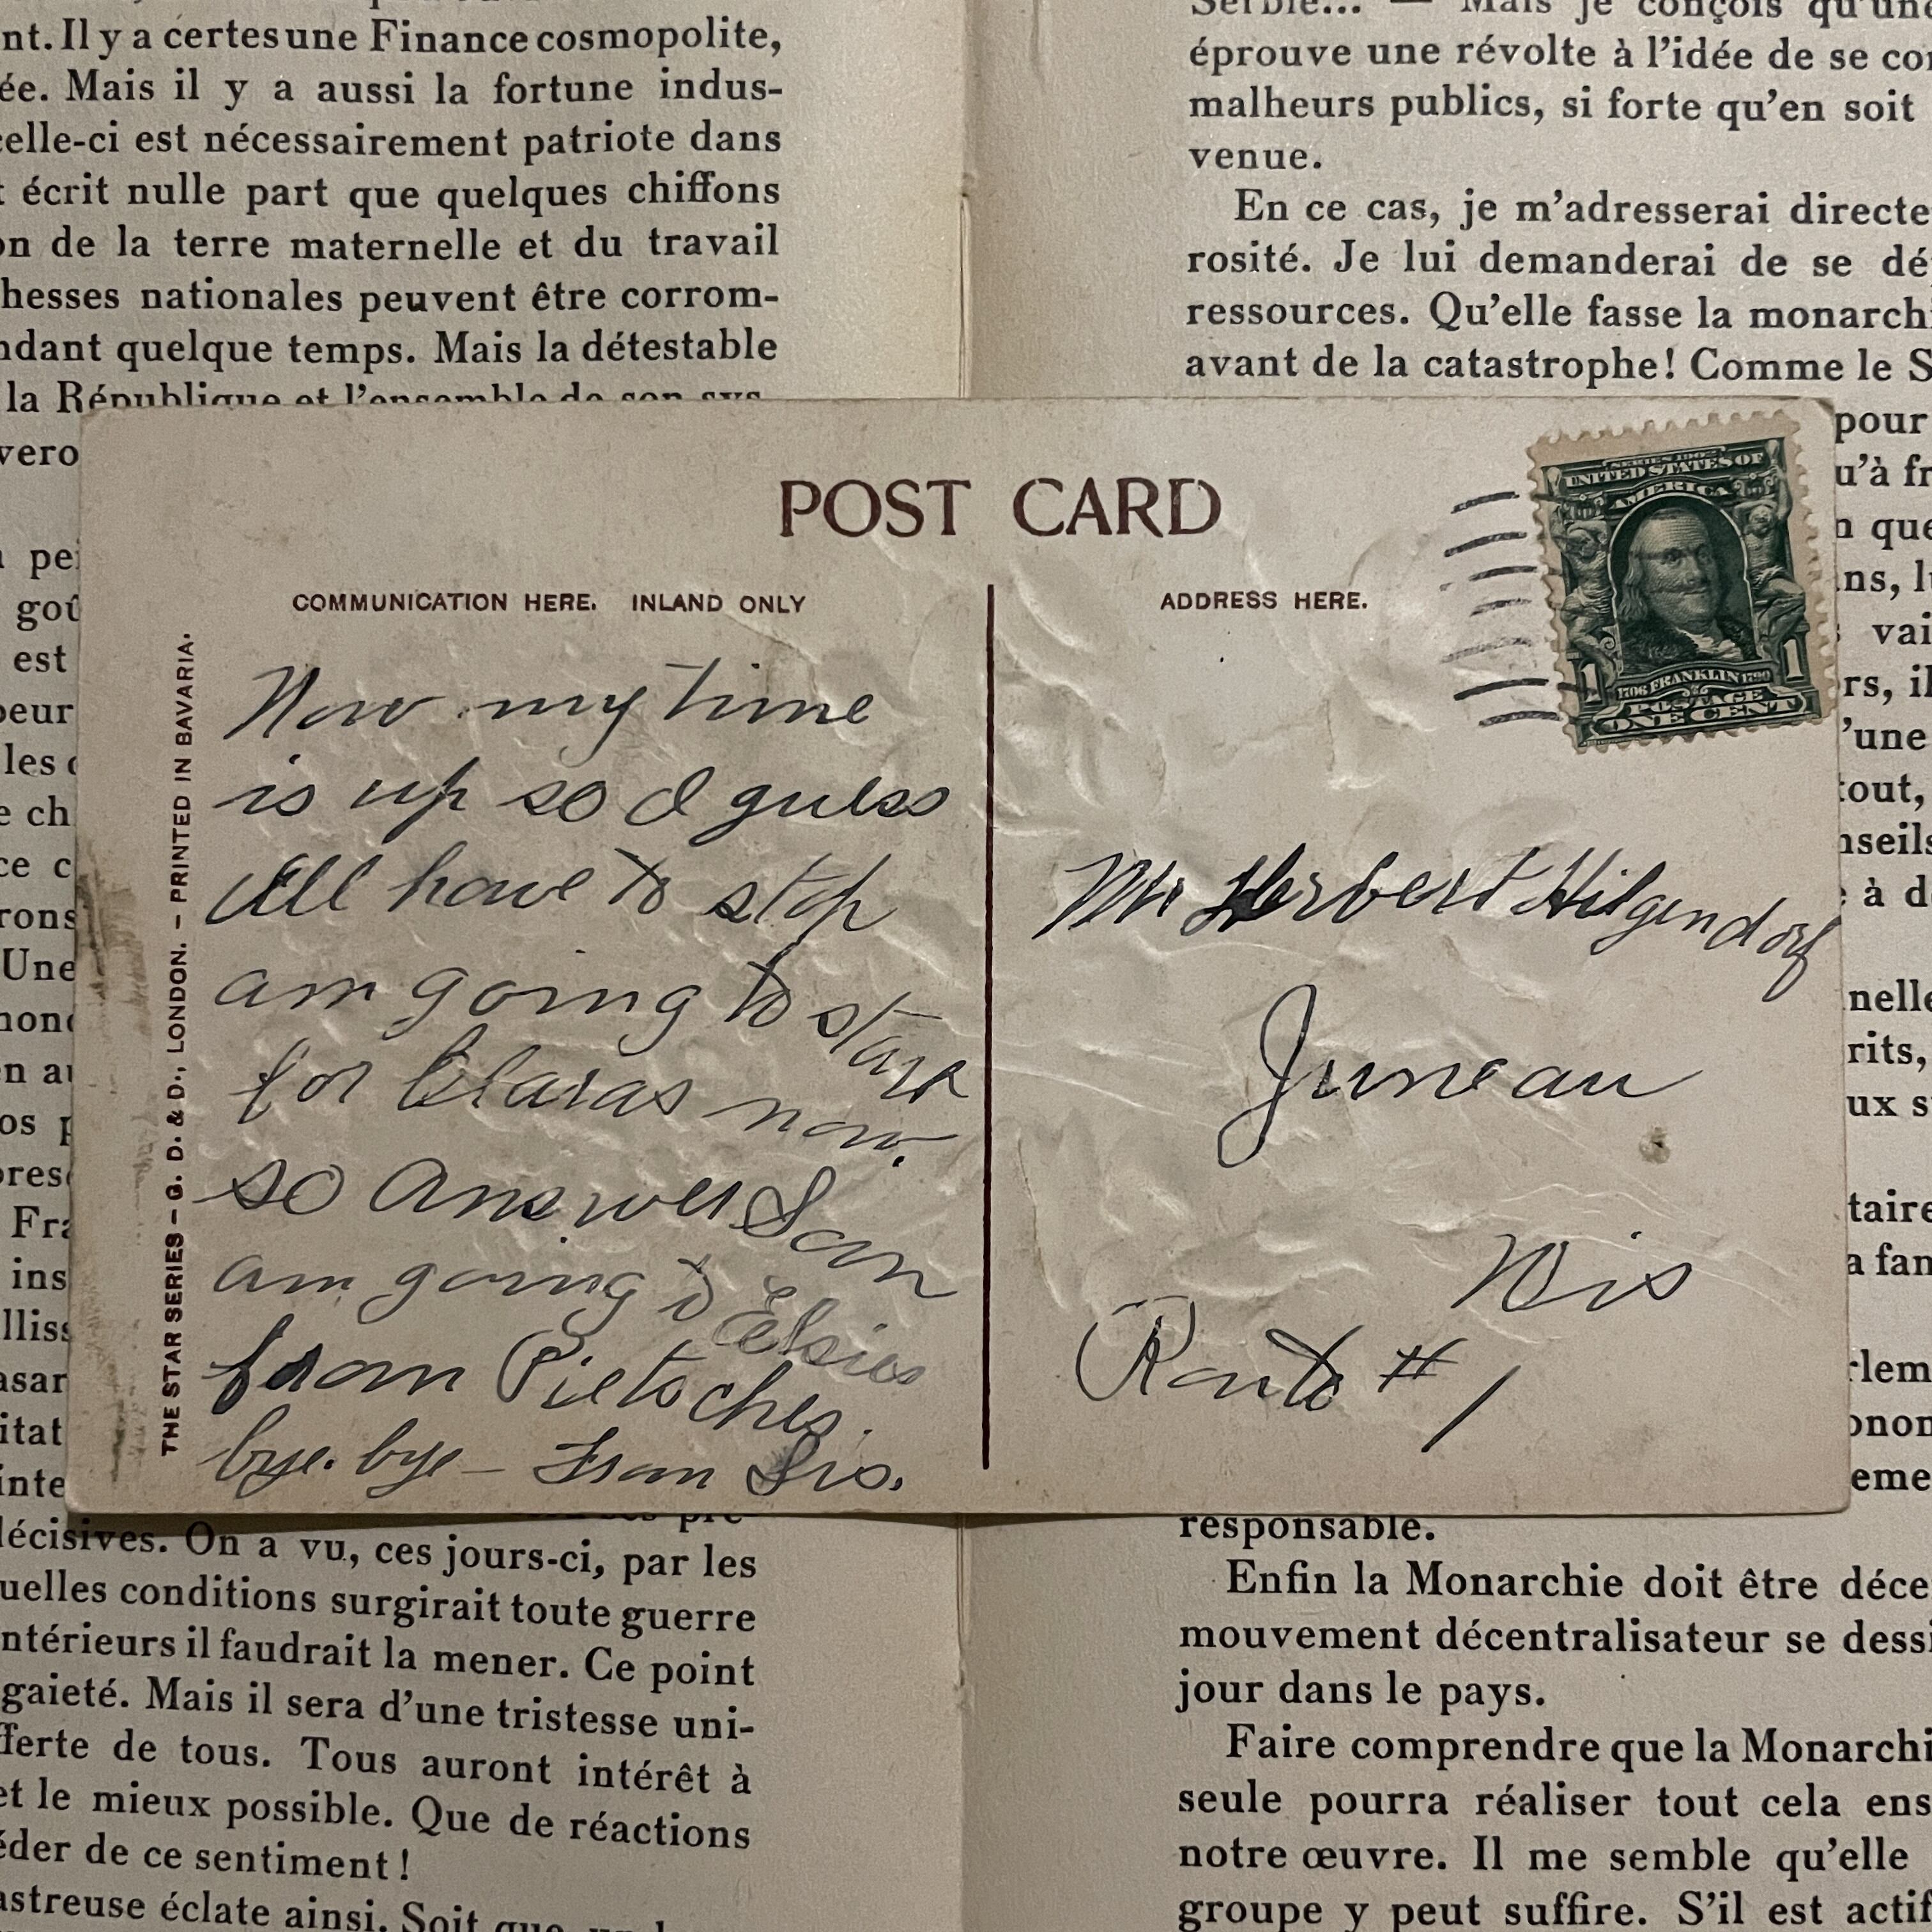 nt. Il y a certes une Finance cosmopolite,
ée. Mais il y a aussi la fortune indus-
celle-ci est nécessairement patriote dans
t écrit nulle part que quelques chiffons
on de la terre maternelle et du travail
hesses nationales peuvent être corrom-
ndant quelque temps. Mais la détestable
la République et l'ensemble de son sys-
vero
pei
goû
est
peur
les
e ch
ce c
rons
Une
mond
en au
os p
prese
Fra
ins
lliss
asar
itat
inte
décisives. On a vu, ces jours-ci, par les
uelles conditions surgirait toute guerre
ntérieurs il faudrait la mener. Ce point
gaieté. Mais il sera d'une tristesse uni-
fferte de tous. Tous auront intérêt à
et le mieux possible. Que de réactions
éder de ce sentiment !
astreuse éclate ainsi. Soit que
Serbie... — Mais je conçois qu'une
éprouve une révolte à l'idée de se con
malheurs publics, si forte qu'en soit
venue.
En ce cas, je m'adresserai directe
rosité. Je lui demanderai de se dé
ressources. Qu'elle fasse la monarchi
avant de la catastrophe! Comme le S
pour
u'à fr
n que
ns, l
vai
rs, il
'une
tout,
nseils
à d
nelle
rits,
ux s
taire
a fam
rlem
onom
eme
responsable.
Enfin la Monarchie doit être déce
mouvement décentralisateur se dessi
jour dans le pays.
Faire comprendre que la Monarchi
seule pourra réaliser tout cela ens
notre œuvre. Il me semble qu'elle
groupe y peut suffire. S'il est actif
POST CARD
COMMUNICATION HERE. INLAND ONLY
ADDRESS HERE.
THE STAR SERIES – G. D. & D., LONDON. – PRINTED IN BAVARIA.
Now my time
is up so I guess
Ill have to stop
am going to start
for Claras now.
so answer Soon
am going to Elsies
from Pietsches.
bye. bye – From Sis.
SERIES 1902
UNITED STATES OF
AMERICA
1706 FRANKLIN 1790
POSTAGE
1 1
ONE CENT
Mr Herbert Hilgendorf
Juneau
Wis
Route # 1